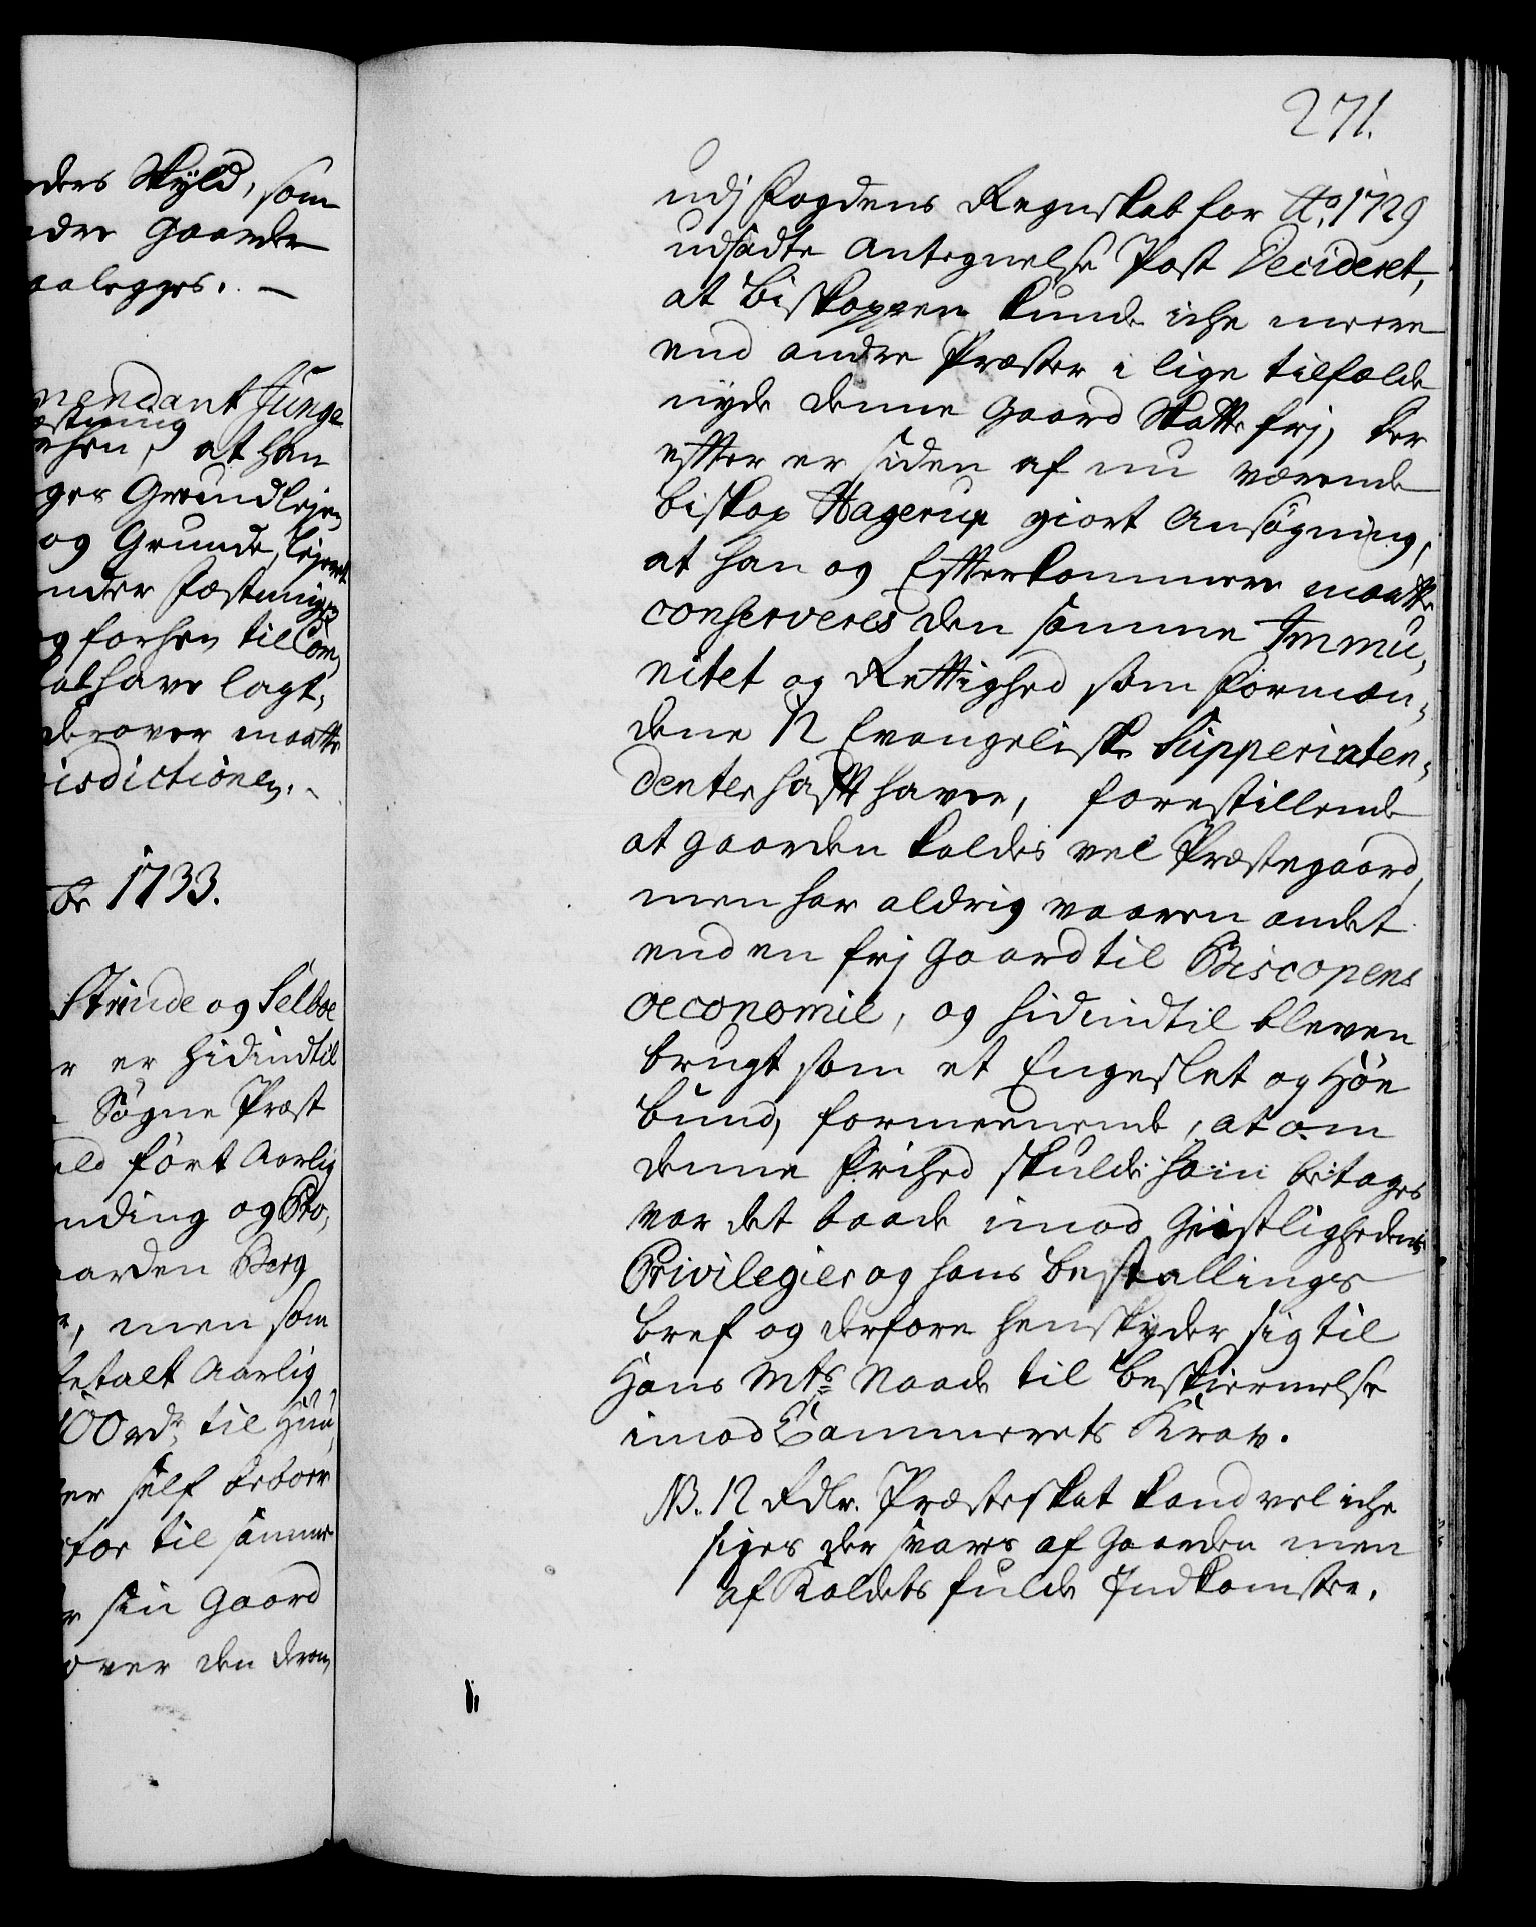 ders Skÿld, som
ndre Gaarder
aalegges. —
mendant Junge
estning
ehsen, at han
ges Grundlejen
og Grunde, lejernt
nder Fæstningen
g forhen till Com
at have lagt,
derover maatte
isdictionen. -
br 1733.
Strinde og Selboe
r er hidindtil
Sogne Præst
eld ført Aarlig
nding og Bo,
aarden Berg
, men som
betalt Aarlig
100 rdr. til Huu
er self beboer
for til samme
r sin Gaard
over den derom
271.
udj Fogdens Regnskab for Ao. 1729
udsadte Antegnelse Post Decideret,
at Biskoppen kunde iche meere
end andre Præster i lige tilfælde
nÿde denne Gaard Skatte frj, der
efter er siden af nu værende
Biskop Hagerup giort Ansøgning,
at han og Efterkommere maatte
conserveres den samme Immu,
nitet og Rettighed som Forman,
dene 12 Evangeliske Supperinten,
denter hafft haver, forestillende
at gaarden kaldes vel Præstegaard,
men har aldrig vaaren andet
end en frj Gaard til Biscopens
oeconomie, og hidindtil bleven
brugt som et Engeslet og Høe
bund, formeenende, at om
denne Frihed skulde ham betages
var det baade imod Geistlighedens
Privilegier og hans Bestallings
bref og derfore henskyder sig til
Hans Mts. Naade til beskiermelse
imod Cammerets Krav.
NB. 12 Rdlr. Præsteskat kand vel iche
siges der svares af Gaarden men
af Kaldets fulde Indkomster.